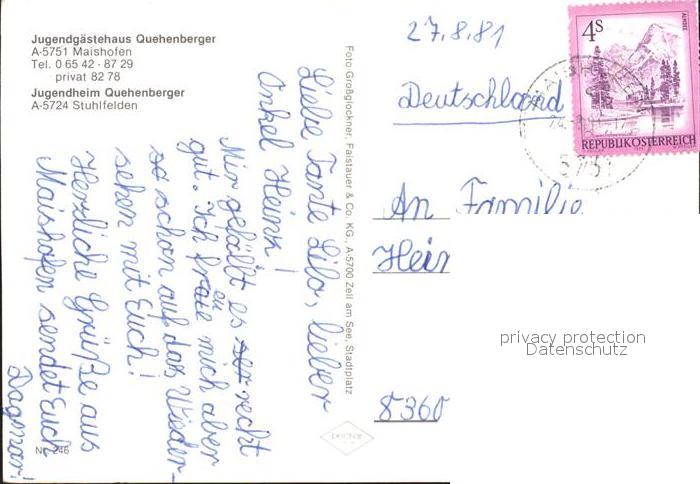 Jugendgästehaus Quehenberger
A-5751 Maishofen
Tel. 0 65 42 · 87 29
privat 82 78
Jugendheim Quehenberger
A-5724 Stuhlfelden
Liebe Tante Lilo, lieber
Onkel Heinz!
Mir gefällt es recht
gut. Ich freue mich aber
so schon auf das Wieder-
sehen mit Euch!
Herzliche Grüße aus
Maishofen sendet Euch
Dagmar!
Nr. 246
Foto Großglockner, Falstauer & Co. KG., A-5700 Zell am See, Stadtplatz
27.8.81
Deutschland
4S
ALMSEE
REPUBLIK ÖSTERREICH
5751
An Familie
Hein
8360
privacy protection
Datenschutz